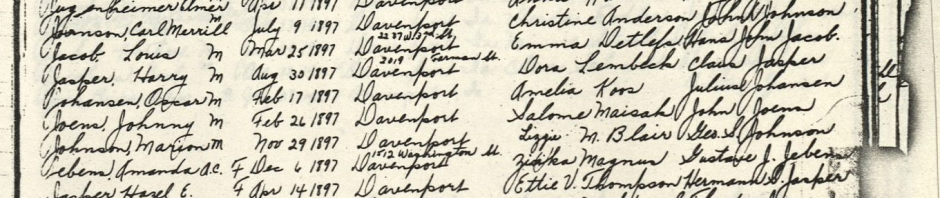 Johnson, Carl Merrill M July 9 1897 Davenport Christine Anderson John A Johnson
Jacob, Louis M Mar 25 1897 2237 W. 3rd St. Davenport Emma Detlefs Hans Jem Jacob.
Jasper Harry M Aug 30 1897 2019 German St. Davenport Dora Lembeck Claus Jasper
Johansen, Oscar M Feb 17 1897 Davenport Amelia Koos Julius Johansen
Joens, Johnny M Feb 26 1897 Davenport Salome Maisak John Joens
Johnson, Marion M Nov 29 1897 Davenport Lizzie M. Blair Geo. S. Johnson
Jebens, Amanda A.C. F Dec 6 1897 1512 Washington St. Davenport Magnus Gustave J. Jebens
Jasper Hazel E. F Apr 14 1897 Davenport Ettie V. Thompson Hermann Jasper